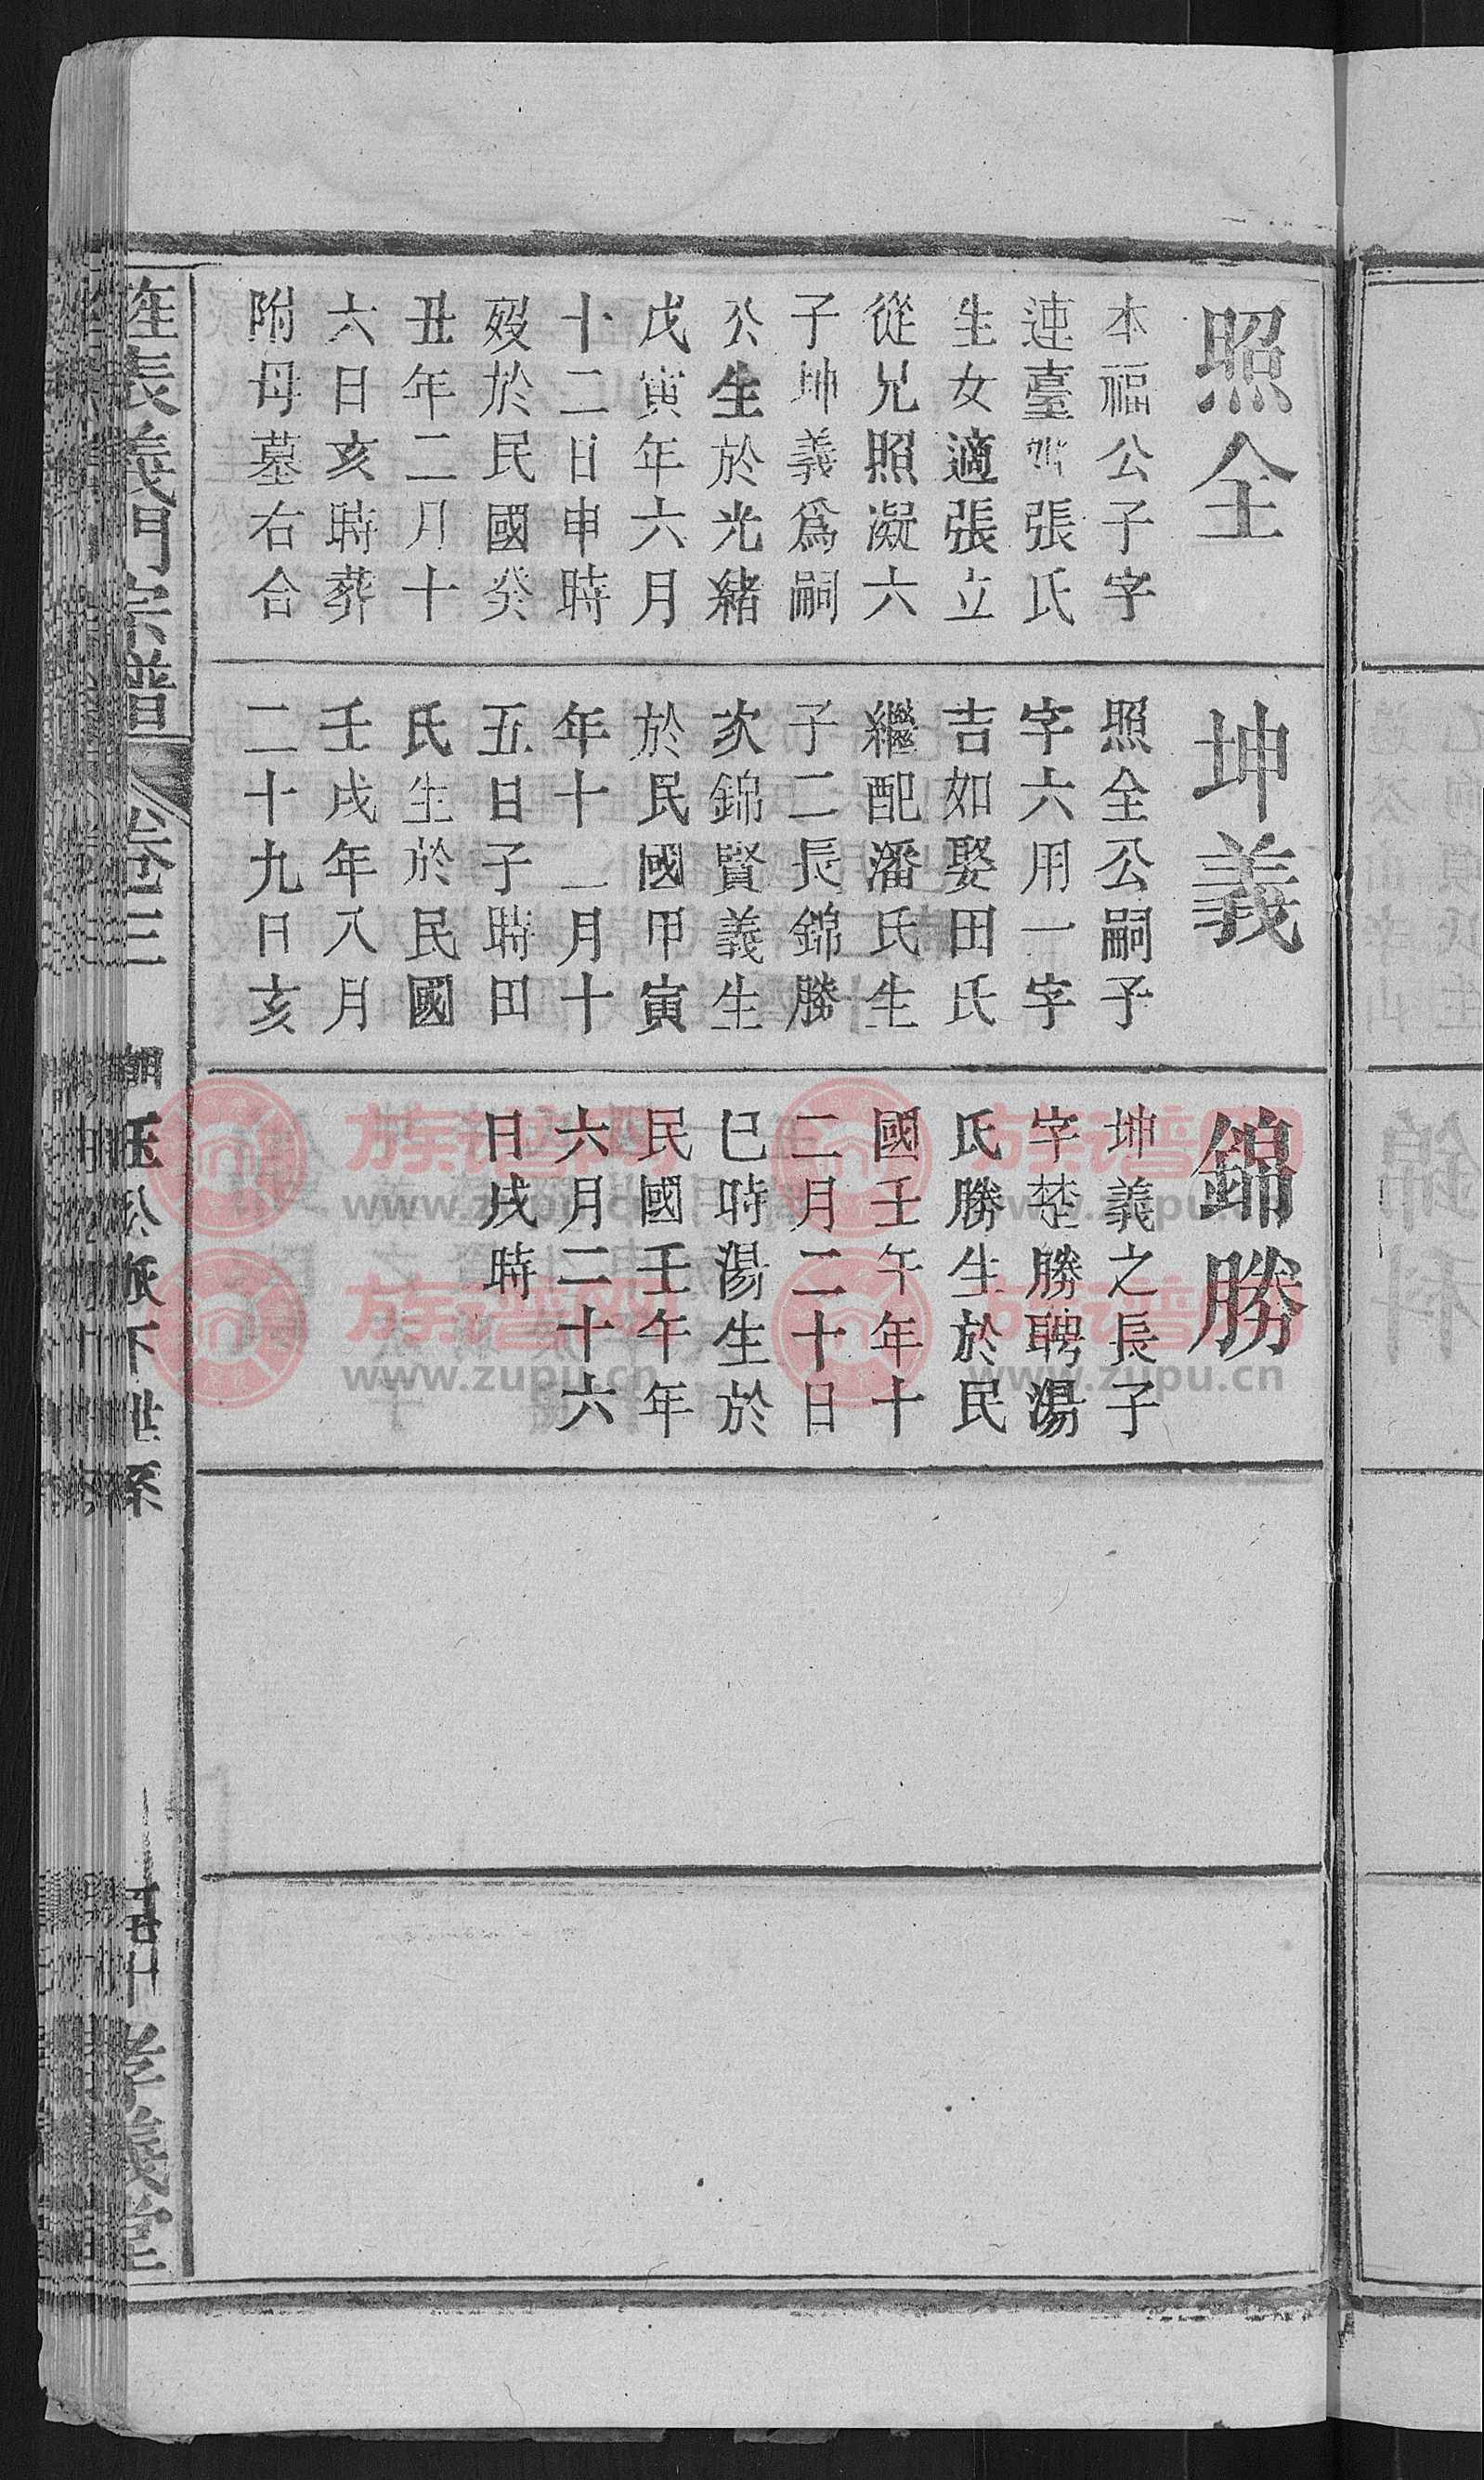 照全
本福公子字
連臺娶張氏
生女適張立
從兄照凝六
子坤義爲嗣
公生於光緒
戊寅年六月
十二日申時
歿於民國癸
丑年二月十
六日亥時葬
附母墓右合
坤義
照全公嗣子
字六用一字
吉如娶田氏
繼配潘氏生
子二長錦勝
次錦賢義生
於民國甲寅
年十一月十
五日子時田
氏生於民國
壬戌年八月
二十九日亥
錦勝
坤義之長子
字楚勝聘湯
氏勝生於民
國壬午年十
二月二十日
巳時湯生於
民國壬午年
六月二十六
日戌時
旌表義門宗譜 卷三
派下世系
族谱网
www.zupu.cn
族谱网
www.zupu.cn
族谱网
www.zupu.cn
族谱网
www.zupu.cn